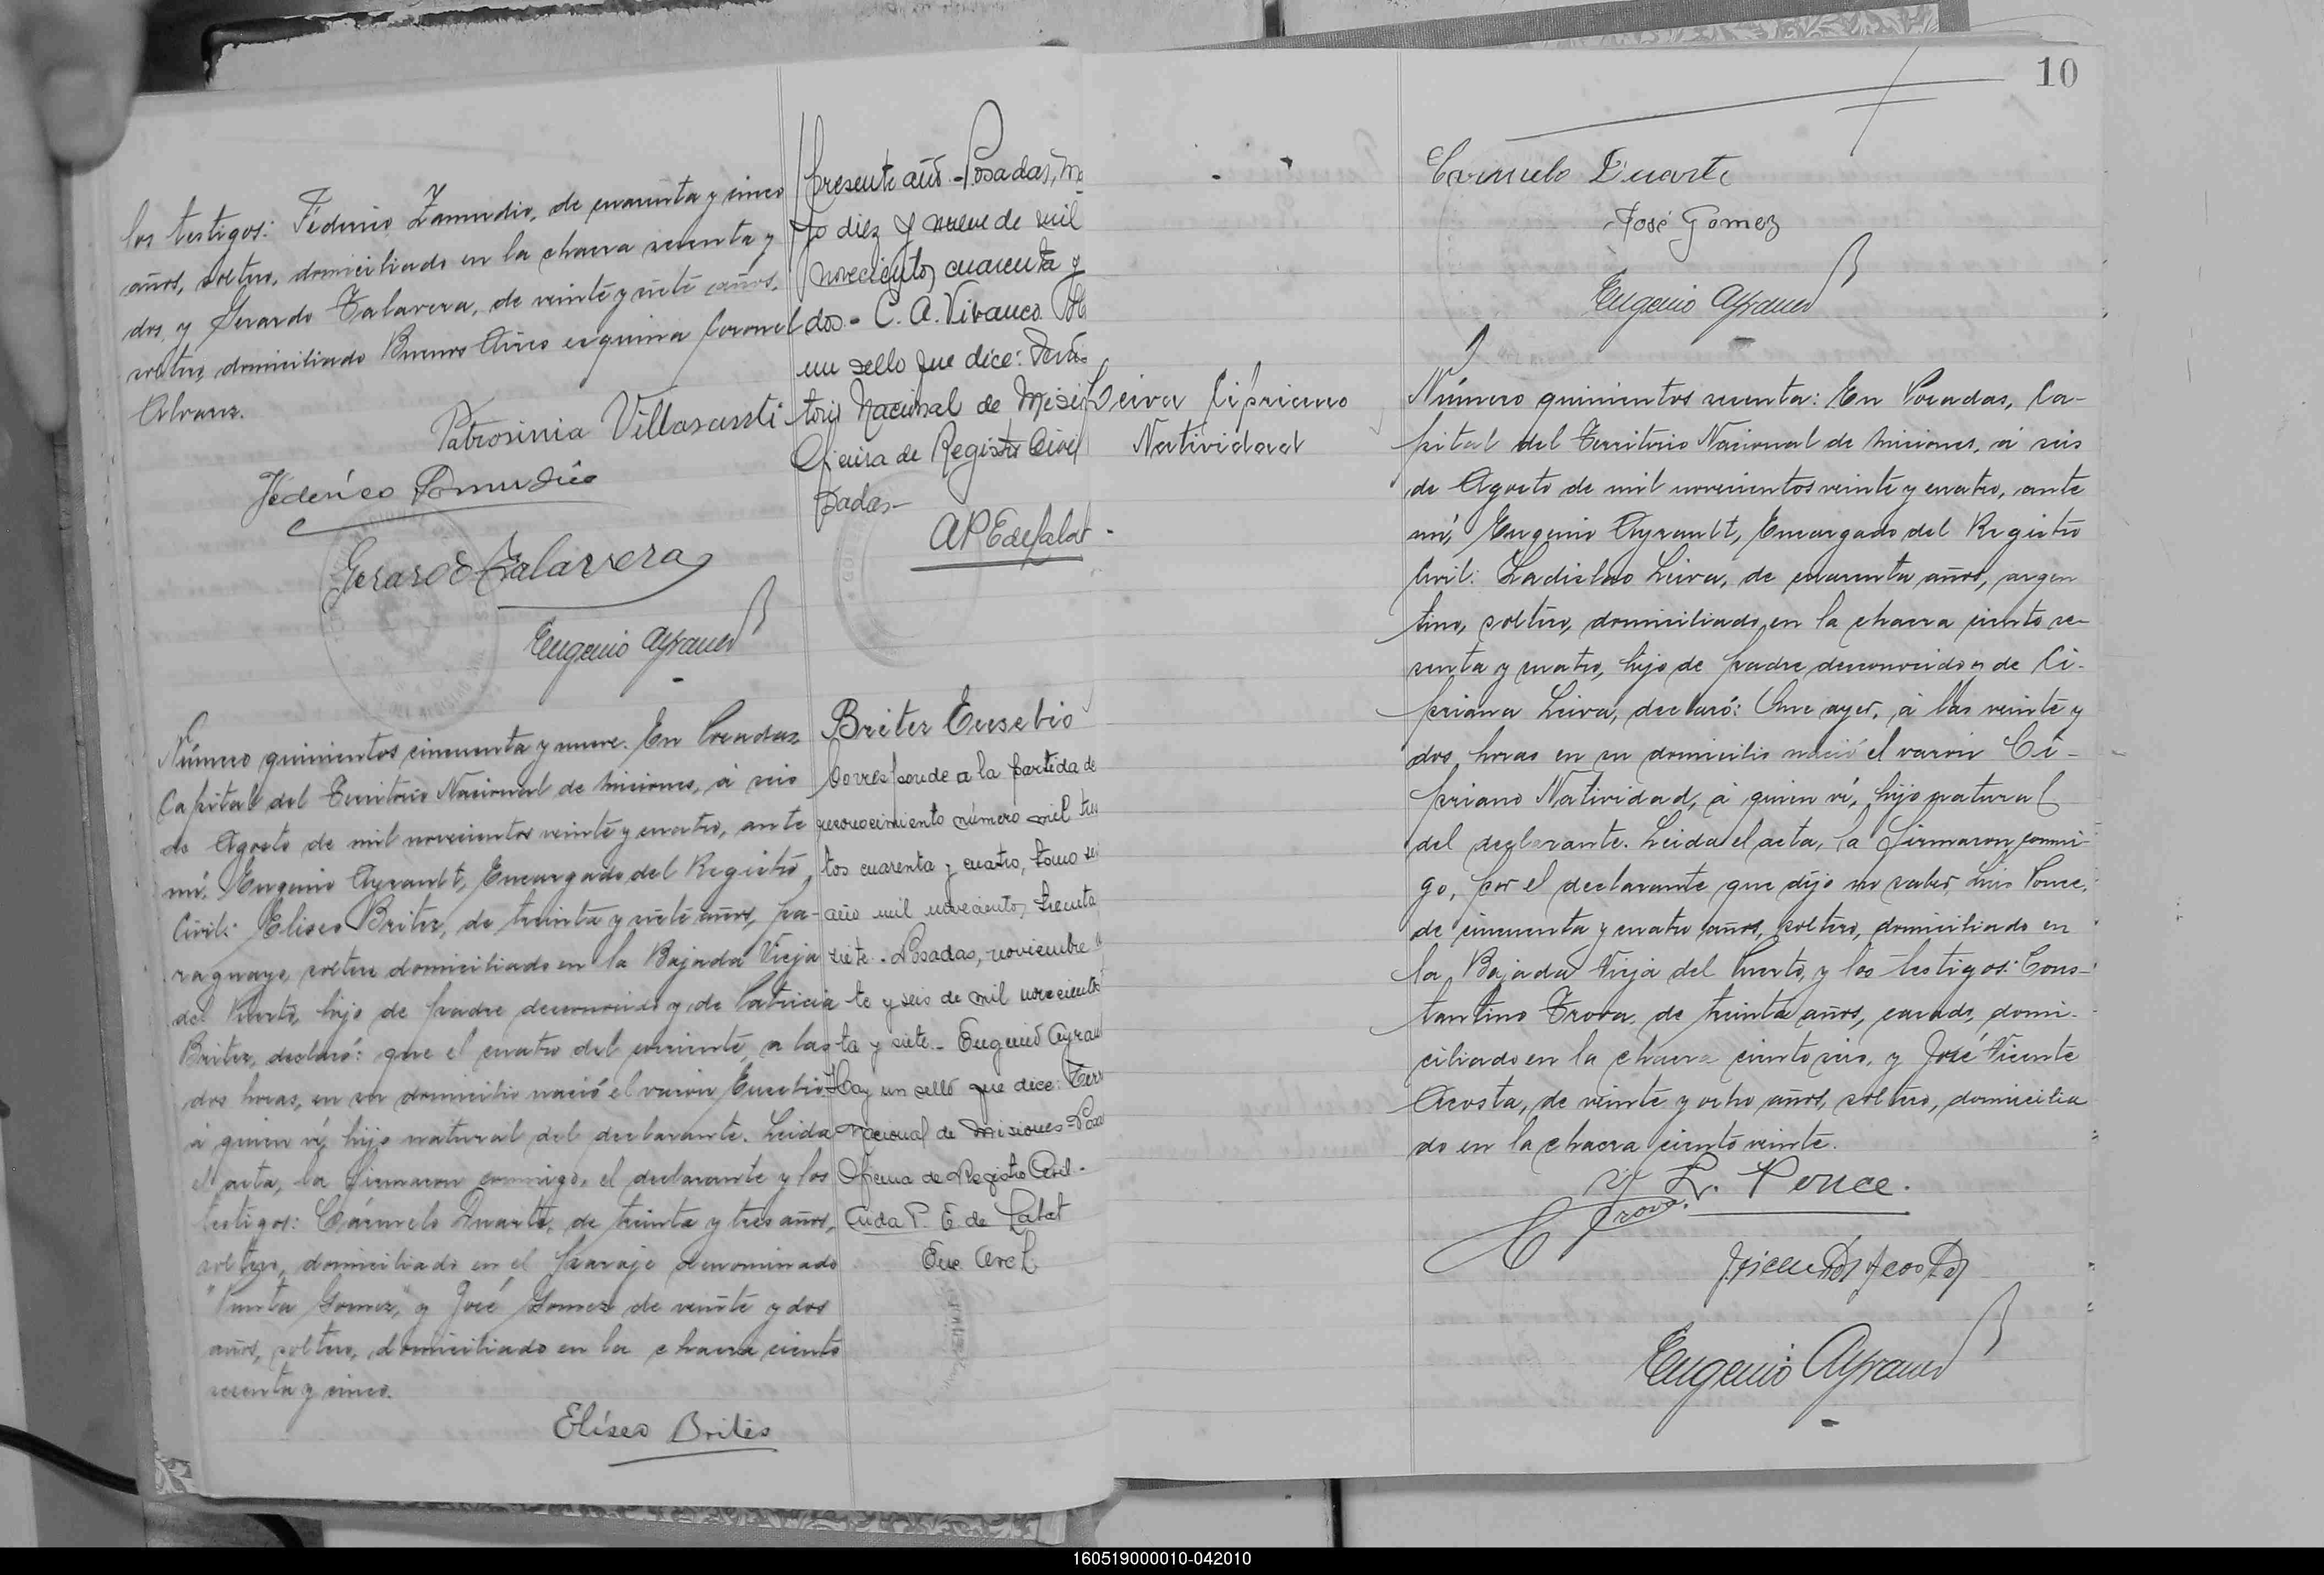 los testigos: Federico Zamudio, de cuarenta y cinco
años, soltero, domiciliado en la chacra sesenta y
dos, y Gerardo Talavera, de veinte y siete años,
soltero, domiciliado Buenos Aires esquina Coronel
Alvarez.
Patrosinia Villasanti
Federico Samudio
Gerardo Talavera
Eugenio Ayrault
presente año.- Posadas, ma
yo diez y nueve de mil
novecientos cuarenta y
dos.- C. A. Vivanco.
un sello que dice: Terri-
torio Nacional de Misio
Oficina de Registro Civil
Posadas-
Número quinientos cincuenta y nueve. En Posadas
Capital del Territorio Nacional de Misiones, á seis
de Agosto de mil novecientos veinte y cuatro, ante
mí, Eugenio Ayrault, Encargado del Registro
Civil: Eliseo Britez, de treinta y siete años, pa-
raguayo, soltero domiciliado en la Bajada Vieja
del Puerto, hijo de padre desconocido y de Patricia
Britez, declaró: que el cuatro del corriente, a las
dos horas, en su domicilio nació el varón Eusebio
á quien ví, hijo natural del declarante. Leida
el acta, la firmaron conmigo, el declarante y los
testigos: Cármelo Duarte, de treinta y tres años,
soltero, domiciliado en el paraje denominado
"Punta Gomez," y José Gomez de veinte y dos
años, soltero, domiciliado en la chacra ciento
sesenta y cinco.
Elíseo Brites
Briter Eusebio
Corresponde a la partida de
reconocimiento número mil tres
tos cuarenta y cuatro, tomo
año mil novecientos treinta
siete.- Posadas, noviembre
te y seis de mil novecientos
ta y siete.- Eugenio Ayrau
Hay un sello que dice: Terr
nacional de Misiones-Posa
Oficina de Registro Civil-
Aida P. E. de Labat
Enc Arch.
10
Carmelo Duarte
José Gomez
Eugenio Ayrault
Leiva Cipriano
Natividad
Número quinientos sesenta: En Posadas, Ca-
pital del Territorio Nacional de Misiones, á seis
de Agosto de mil novecientos veinte y cuatro, ante
mí, Eugenio Ayrault, Encargado del Registro
Civil: Ladislao Leiva, de cuarenta años, argen
tino, soltero, domiciliado en la chacra ciento se-
senta y cuatro, hijo de padre desconocido y de Ci-
priana Leiva, declaró: Que ayer, á las veinte y
dos horas en su domicilio nació el varón Ci-
priano Natividad, á quien ví, hijo natural
del declarante. Leida el acta, la firmaron conmi-
go, por el declarante que dijo no saber, Luis Ponce,
de cincuenta y cuatro años, soltero, domiciliado en
la Bajada Vieja del Puerto, y los testigos: Cons-
tantino Trova, de treinta años, casado, domi-
ciliado en la chacra ciento seis, y José Vicente
Acosta, de veinte y ocho años, soltero, domicilia
do en la chacra ciento veinte.
L. Ponce.
C Trova.
JVicente Acosta
Eugenio Ayrault
160519000010-042010